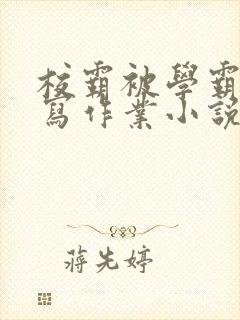 校霸被學霸
寫作業小說
蔣先婷